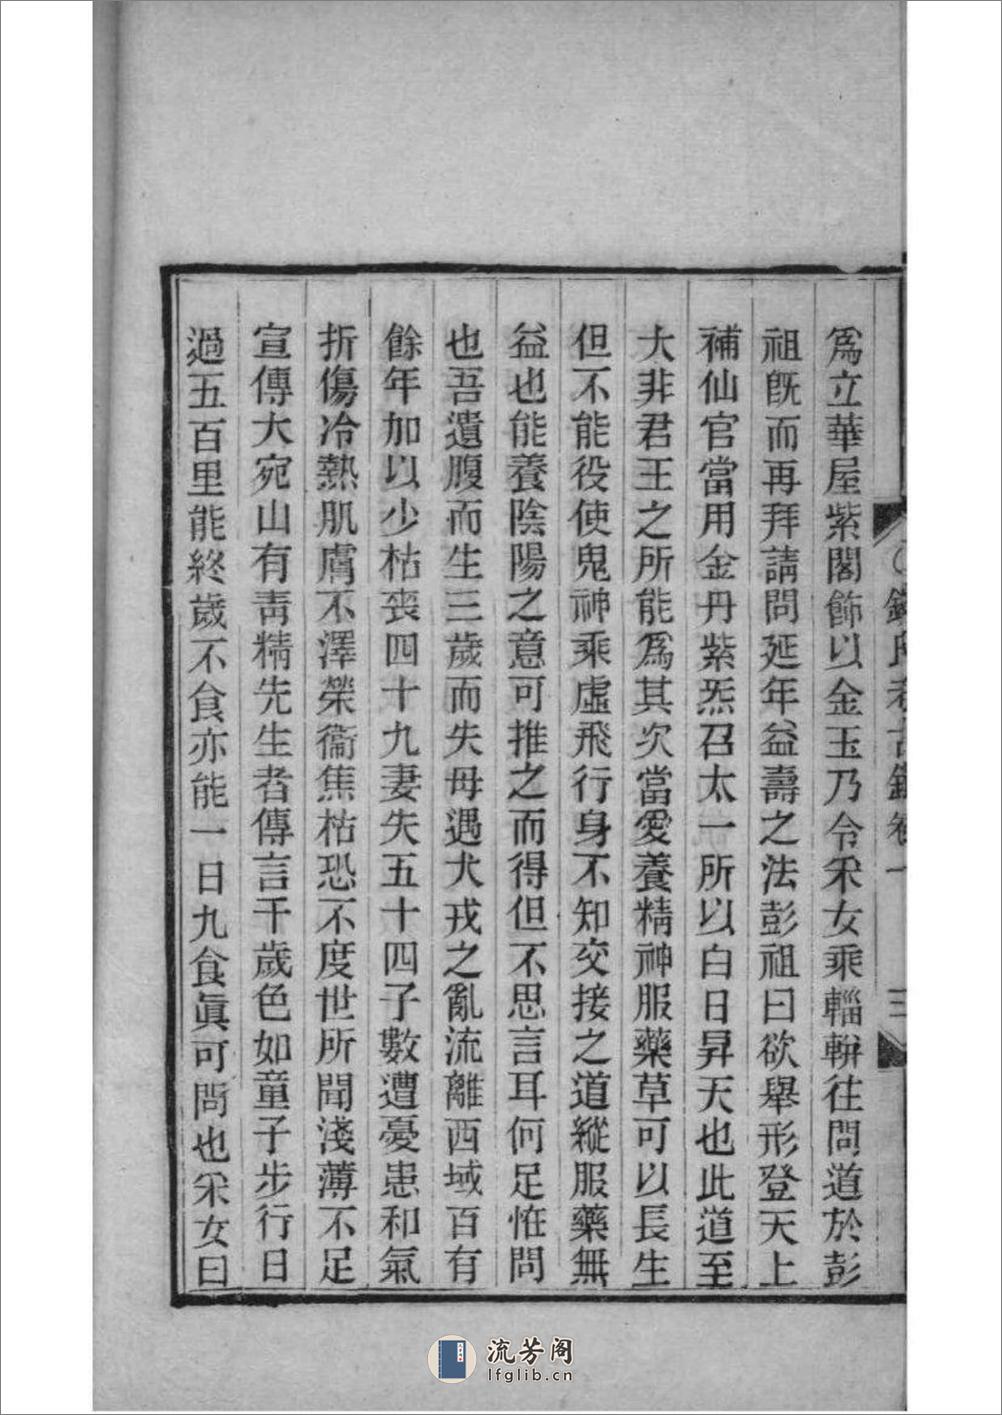 爲立華屋紫閣飾以金玉乃令采女乘輜軿往問道於彭
祖旣而再拜請問延年益壽之法彭祖曰欲舉形登天上
補仙官當用金丹紫炁召太一所以白日昇天也此道至
大非君王之所能爲其次當愛養精神服藥草可以長生
但不能役使鬼神乘虛飛行身不知交接之道縱服藥無
益也能養陰陽之意可推之而得但不思言耳何足怪問
也吾遺腹而生三歲而失母遇犬戎之亂流離西域百有
餘年加以少枯喪四十九妻失五十四子數遭憂患和氣
折傷冷熱肌膚不澤榮衞焦枯恐不度世所聞淺薄不足
宣傳大宛山有靑精先生者傳言千歲色如童子步行日
過五百里能終歲不食亦能一日九食眞可問也采女曰
卷一
三
流芳阁
lfglib.cn